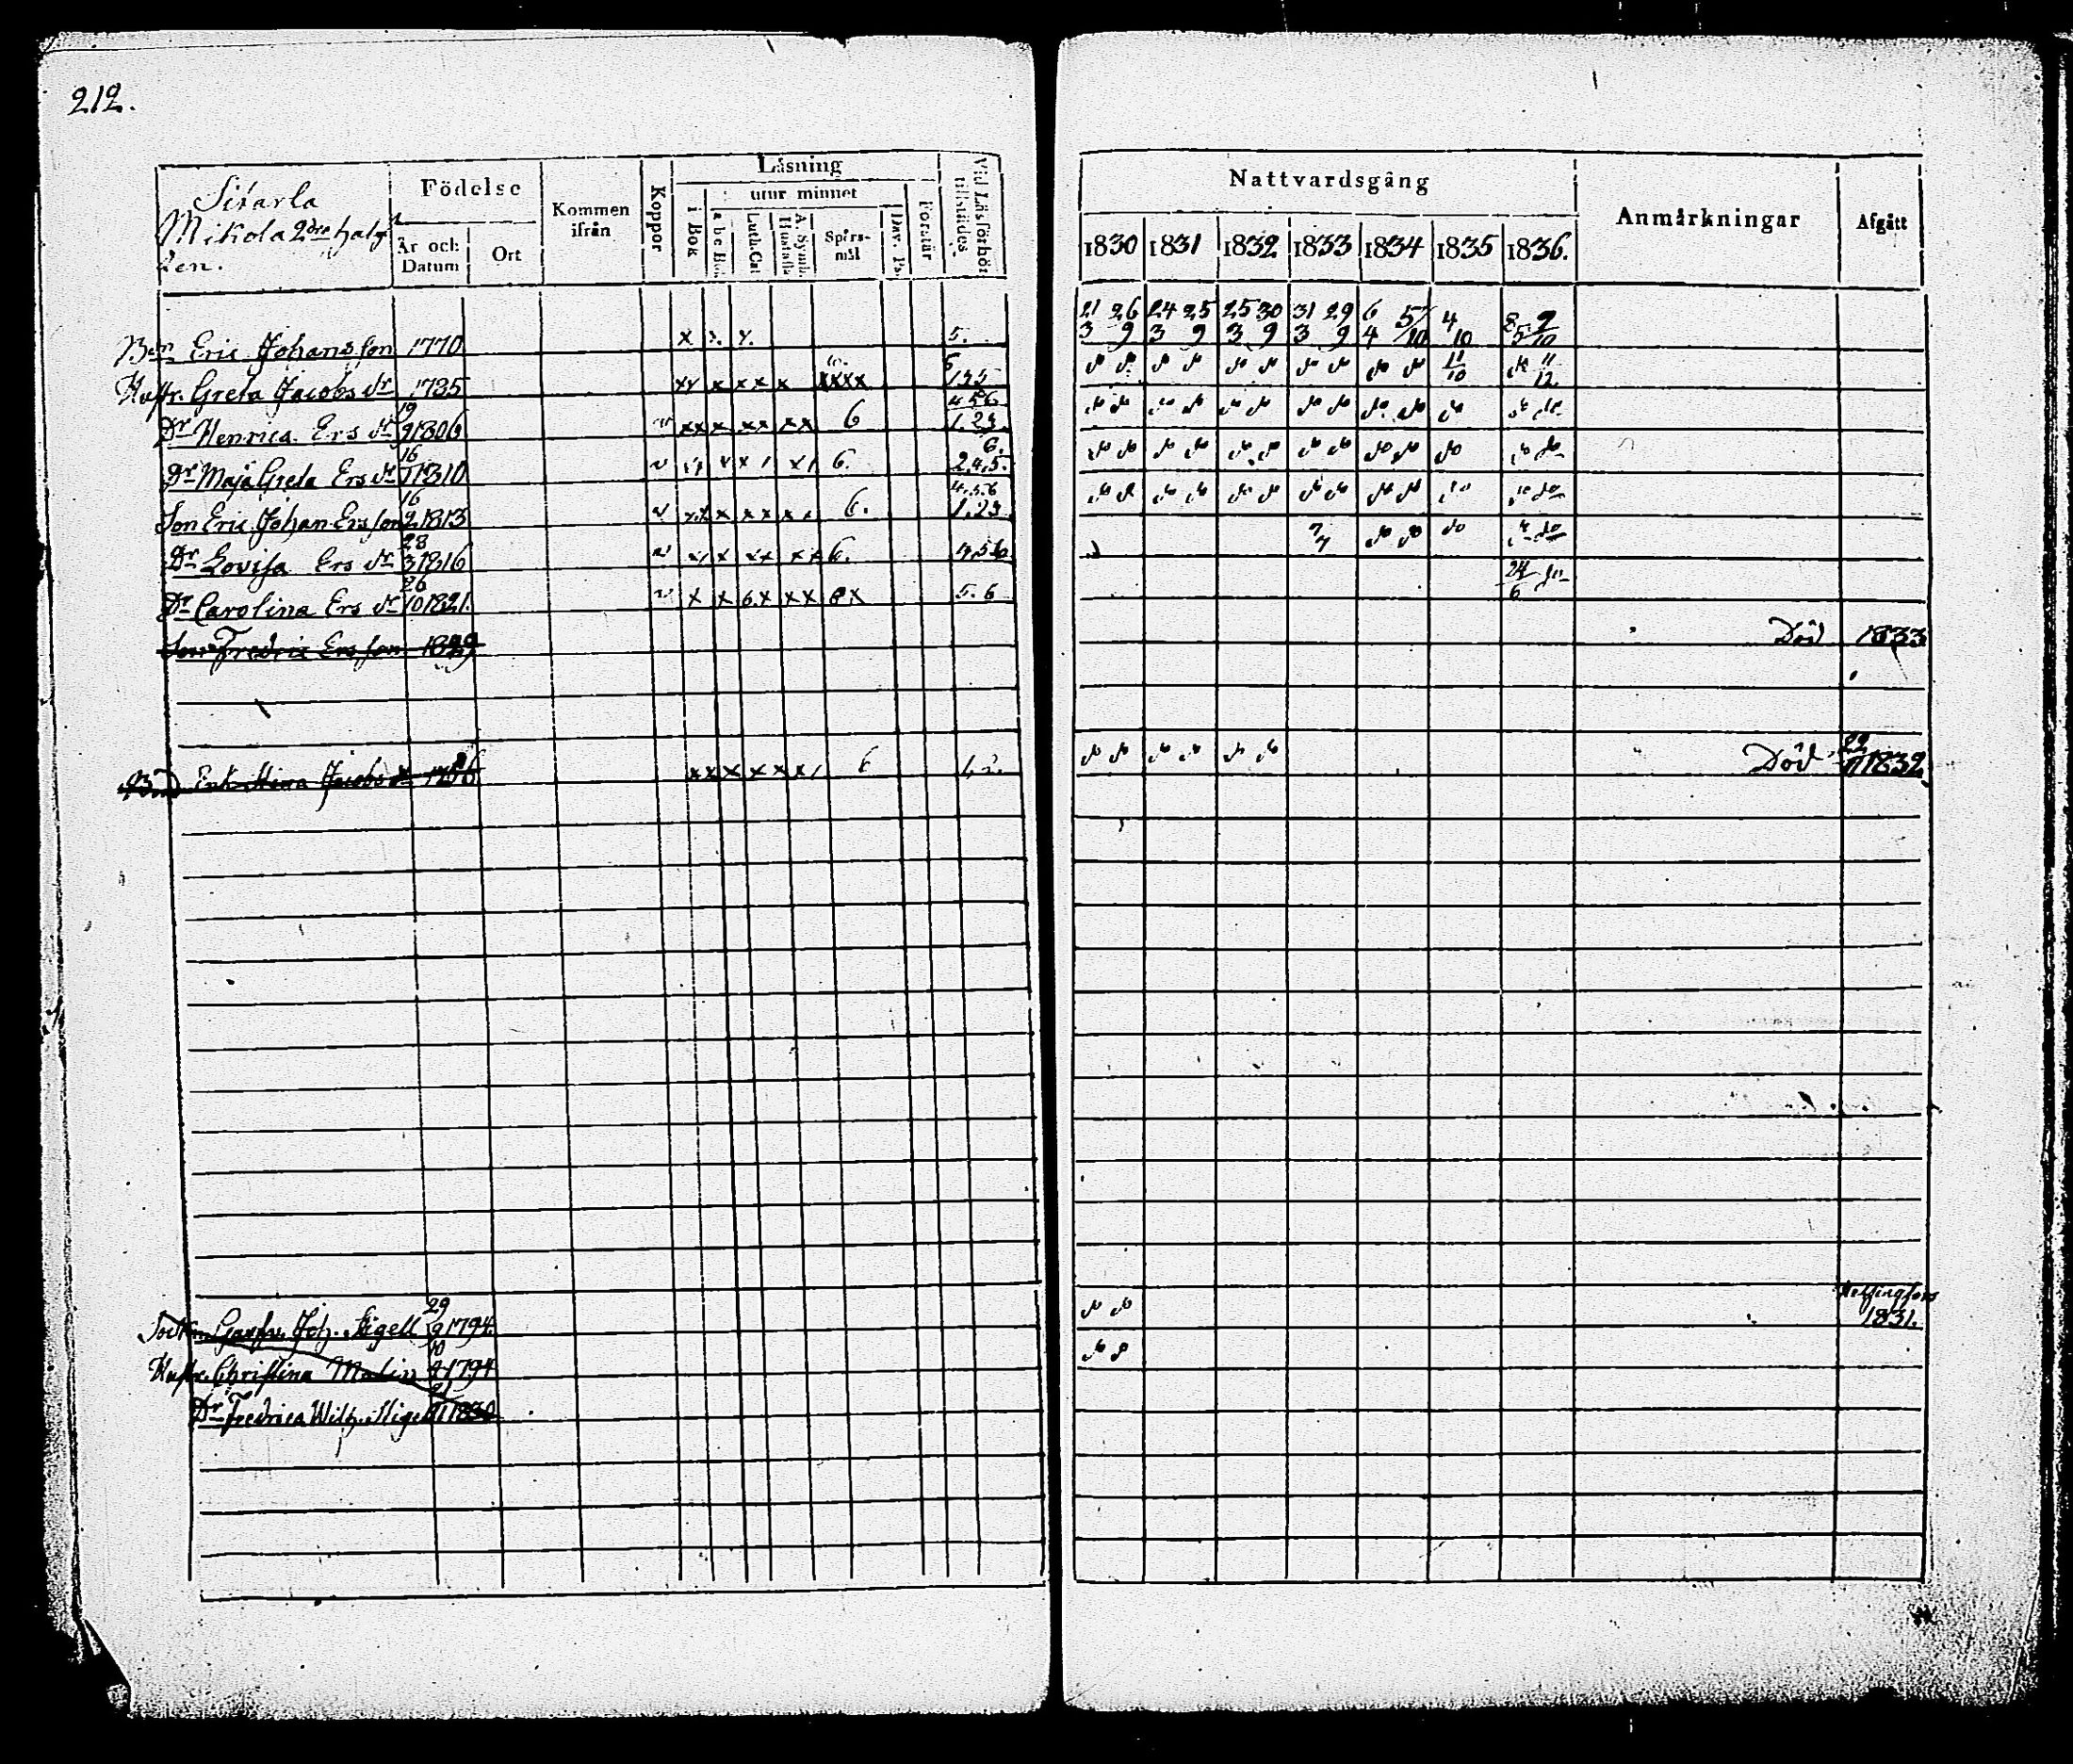 212.
Sixarla
Mikola 2dra halfv
den.
Födelse
År och Datum
Ort
Kommen ifrån
Koppor
Läsning
utur minnet
i Bok
a be Bok
Luth. Cat
A. Symb. Hustafla
Spörs-mål
Dav. Ps.
Förstår
Vid Läsförhör tillstädes
Nattvardsgång
1830 1831 1832 1833 1834 1835 1836.
Anmärkningar
Afgått
Bon Eric Johansson 1770 x x. x. 5. 21/3 26/9 24/3 25/9 25/3 30/9 31/3 29/9 6/4 5/10 4/10 8/5 9/10
Hustr. Greta Jacobs dr 1785 xx x xx x xxxx 11/10 11/12
Dr Henrica Ers dr 19/9 1806 xx x xx xx 6 4 5 6 1.23.
Dr Maja Greta Ers dr 16/11 1810 6. 6. 2.4.5.
Son Eric Johan Ersson 16/2 1813 6. 4.5.6 1.23 7/7
Dr Lovisa Ers dr 28/3 1816 6. 4.5.6. 24/6
Dr Carolina Ers dr 26/10 1821. x x 6.x xx 6x 5.6
Son Fredric Ersson 1829 Död 1833
Enk. Stina Jacobs dr xx x xx x/ 6 1.2. Död 22/11 1832
Sockn. Garfv. Joh. Sigell 29/9 1794. Helsingfors 1831.
Hustr. Christina Malin 1794
Dr Fredrica Wilh. Sigell 1830